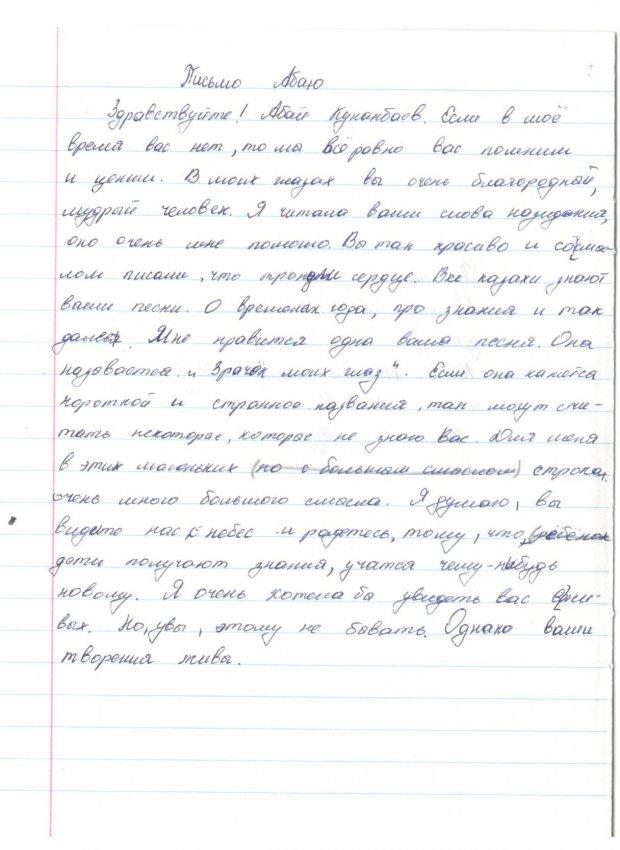 Письмо Абаю
Здравствуйте! Абай Кунанбаев. Если в моё
время вас нет, то мы всё ровно вас помним
и ценим. В моих глазах вы очень благородный,
мудрый человек. Я читала ваши слова назидания,
оно очень мне помогло. Вы так красиво и со смы-
лом писали, что тронули сердце. Все казахи знают
ваши песни. О временах года, про знания и так
далее. Мне нравится одна ваша песня. Она
називается „Зрачок моих глаз“. Если она кажется
короткой и странное название, так могут счи-
тать некоторые, которые не знают Вас. Для меня
в этих маленьких (но с большим смыслом) строках
очень много большого смысла. Я думаю, вы
видите нас с небес и радетесь, тому, что
дети получают знания, учатся чему-нибудь
новому. Я очень хотела бы увидеть вас жи-
вых. Но, увы, этому не бывать. Однако ваши
творения живы.